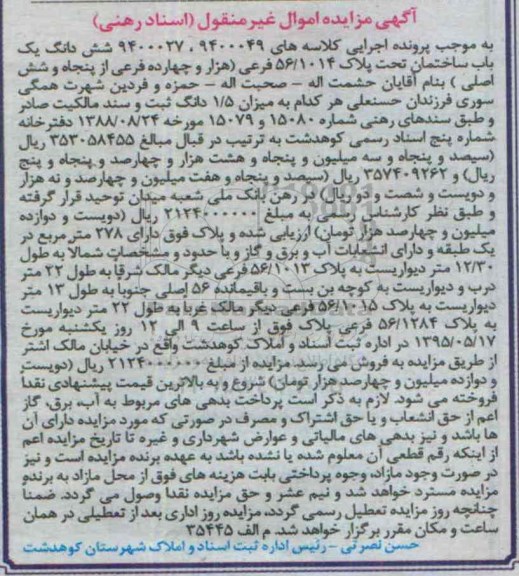 آگهی مزایده اموال غیر منقول (اسناد رهنی)
به موجب پرونده اجرایی کلاسه های ۹۴۰۰۰۴۹ ، ۹۴۰۰۰۲۷ شش دانگ یک
باب ساختمان تحت پلاک ۵۶/۱۰۱۴ فرعی (هزار و چهارده فرعی از پنجاه و شش
اصلی ) بنام آقایان حشمت اله - صحبت اله - حمزه و فردین شهرت همگی
سوری فرزندان حسنعلی هر کدام به میزان ۱/۵ دانگ ثبت و سند مالکیت صادر
و طبق سندهای رهنی شماره ۱۵۰۸۰ و ۱۵۰۷۹ مورخه ۱۳۸۸/۰۸/۲۴ دفترخانه
شماره پنج اسناد رسمی کوهدشت به ترتیب در قبال مبالغ ۳۵۳۰۵۸۴۵۵ ریال
(سیصد و پنجاه و سه میلیون و پنجاه و هشت هزار و چهارصد و پنجاه و پنج
ریال) و ۳۵۷۴۰۹۲۶۲ ریال (سیصد و پنجاه و هفت میلیون و چهارصد و نه هزار
و دویست و شصت و دو ریال) در رهن بانک ملی شعبه میدان توحید قرار گرفته
و طبق نظر کارشناس رسمی به مبلغ ۲۱۲۴۰۰۰۰۰۰ ریال (دویست و دوازده
میلیون و چهارصد هزار تومان) ارزیابی شده و پلاک فوق دارای ۲۷۸ متر مربع در
یک طبقه و دارای انشعابات آب و برق و گاز و با حدود و مشخصات شمالاً به طول
۱۲/۳۰ متر دیواریست به پلاک ۵۶/۱۰۱۳ فرعی دیگر مالک شرقاً به طول ۲۲ متر
درب و دیواریست به کوچه بن بست و باقیمانده ۵۶ اصلی جنوباً به طول ۱۳ متر
دیواریست به پلاک ۵۶/۱۰۱۵ فرعی دیگر مالک غرباً به طول ۲۲ متر دیواریست
به پلاک ۵۶/۱۲۸۴ فرعی پلاک فوق از ساعت ۹ الی ۱۲ روز یکشنبه مورخ
۱۳۹۵/۰۵/۱۷ در اداره ثبت اسناد و املاک کوهدشت واقع در خیابان مالک اشتر
از طریق مزایده به فروش می رسد. مزایده از مبلغ ۲۱۲۴۰۰۰۰۰۰ ریال (دویست
و دوازده میلیون و چهارصد هزار تومان) شروع و به بالاترین قیمت پیشنهادی نقداً
فروخته می شود. لازم به ذکر است پرداخت بدهی های مربوط به آب، برق، گاز
اعم از حق انشعاب و یا حق اشتراک و مصرف در صورتی که مورد مزایده دارای آن
ها باشد و نیز بدهی های مالیاتی و عوارض شهرداری و غیره تا تاریخ مزایده اعم
از اینکه رقم قطعی آن معلوم شده یا نشده باشد به عهده برنده مزایده است و نیز
در صورت وجود مازاد، وجوه پرداختی بابت هزینه های فوق از محل مازاد به برنده
مزایده مسترد خواهد شد و نیم عشر و حق مزایده نقدا وصول می گردد. ضمنا
چنانچه روز مزایده تعطیل رسمی گردد، مزایده روز اداری بعد از تعطیلی در همان
ساعت و مکان مقرر برگزار خواهد شد. م الف ۳۵۴۴۵
حسن نصرتی - رئیس اداره ثبت اسناد و املاک شهرستان کوهدشت